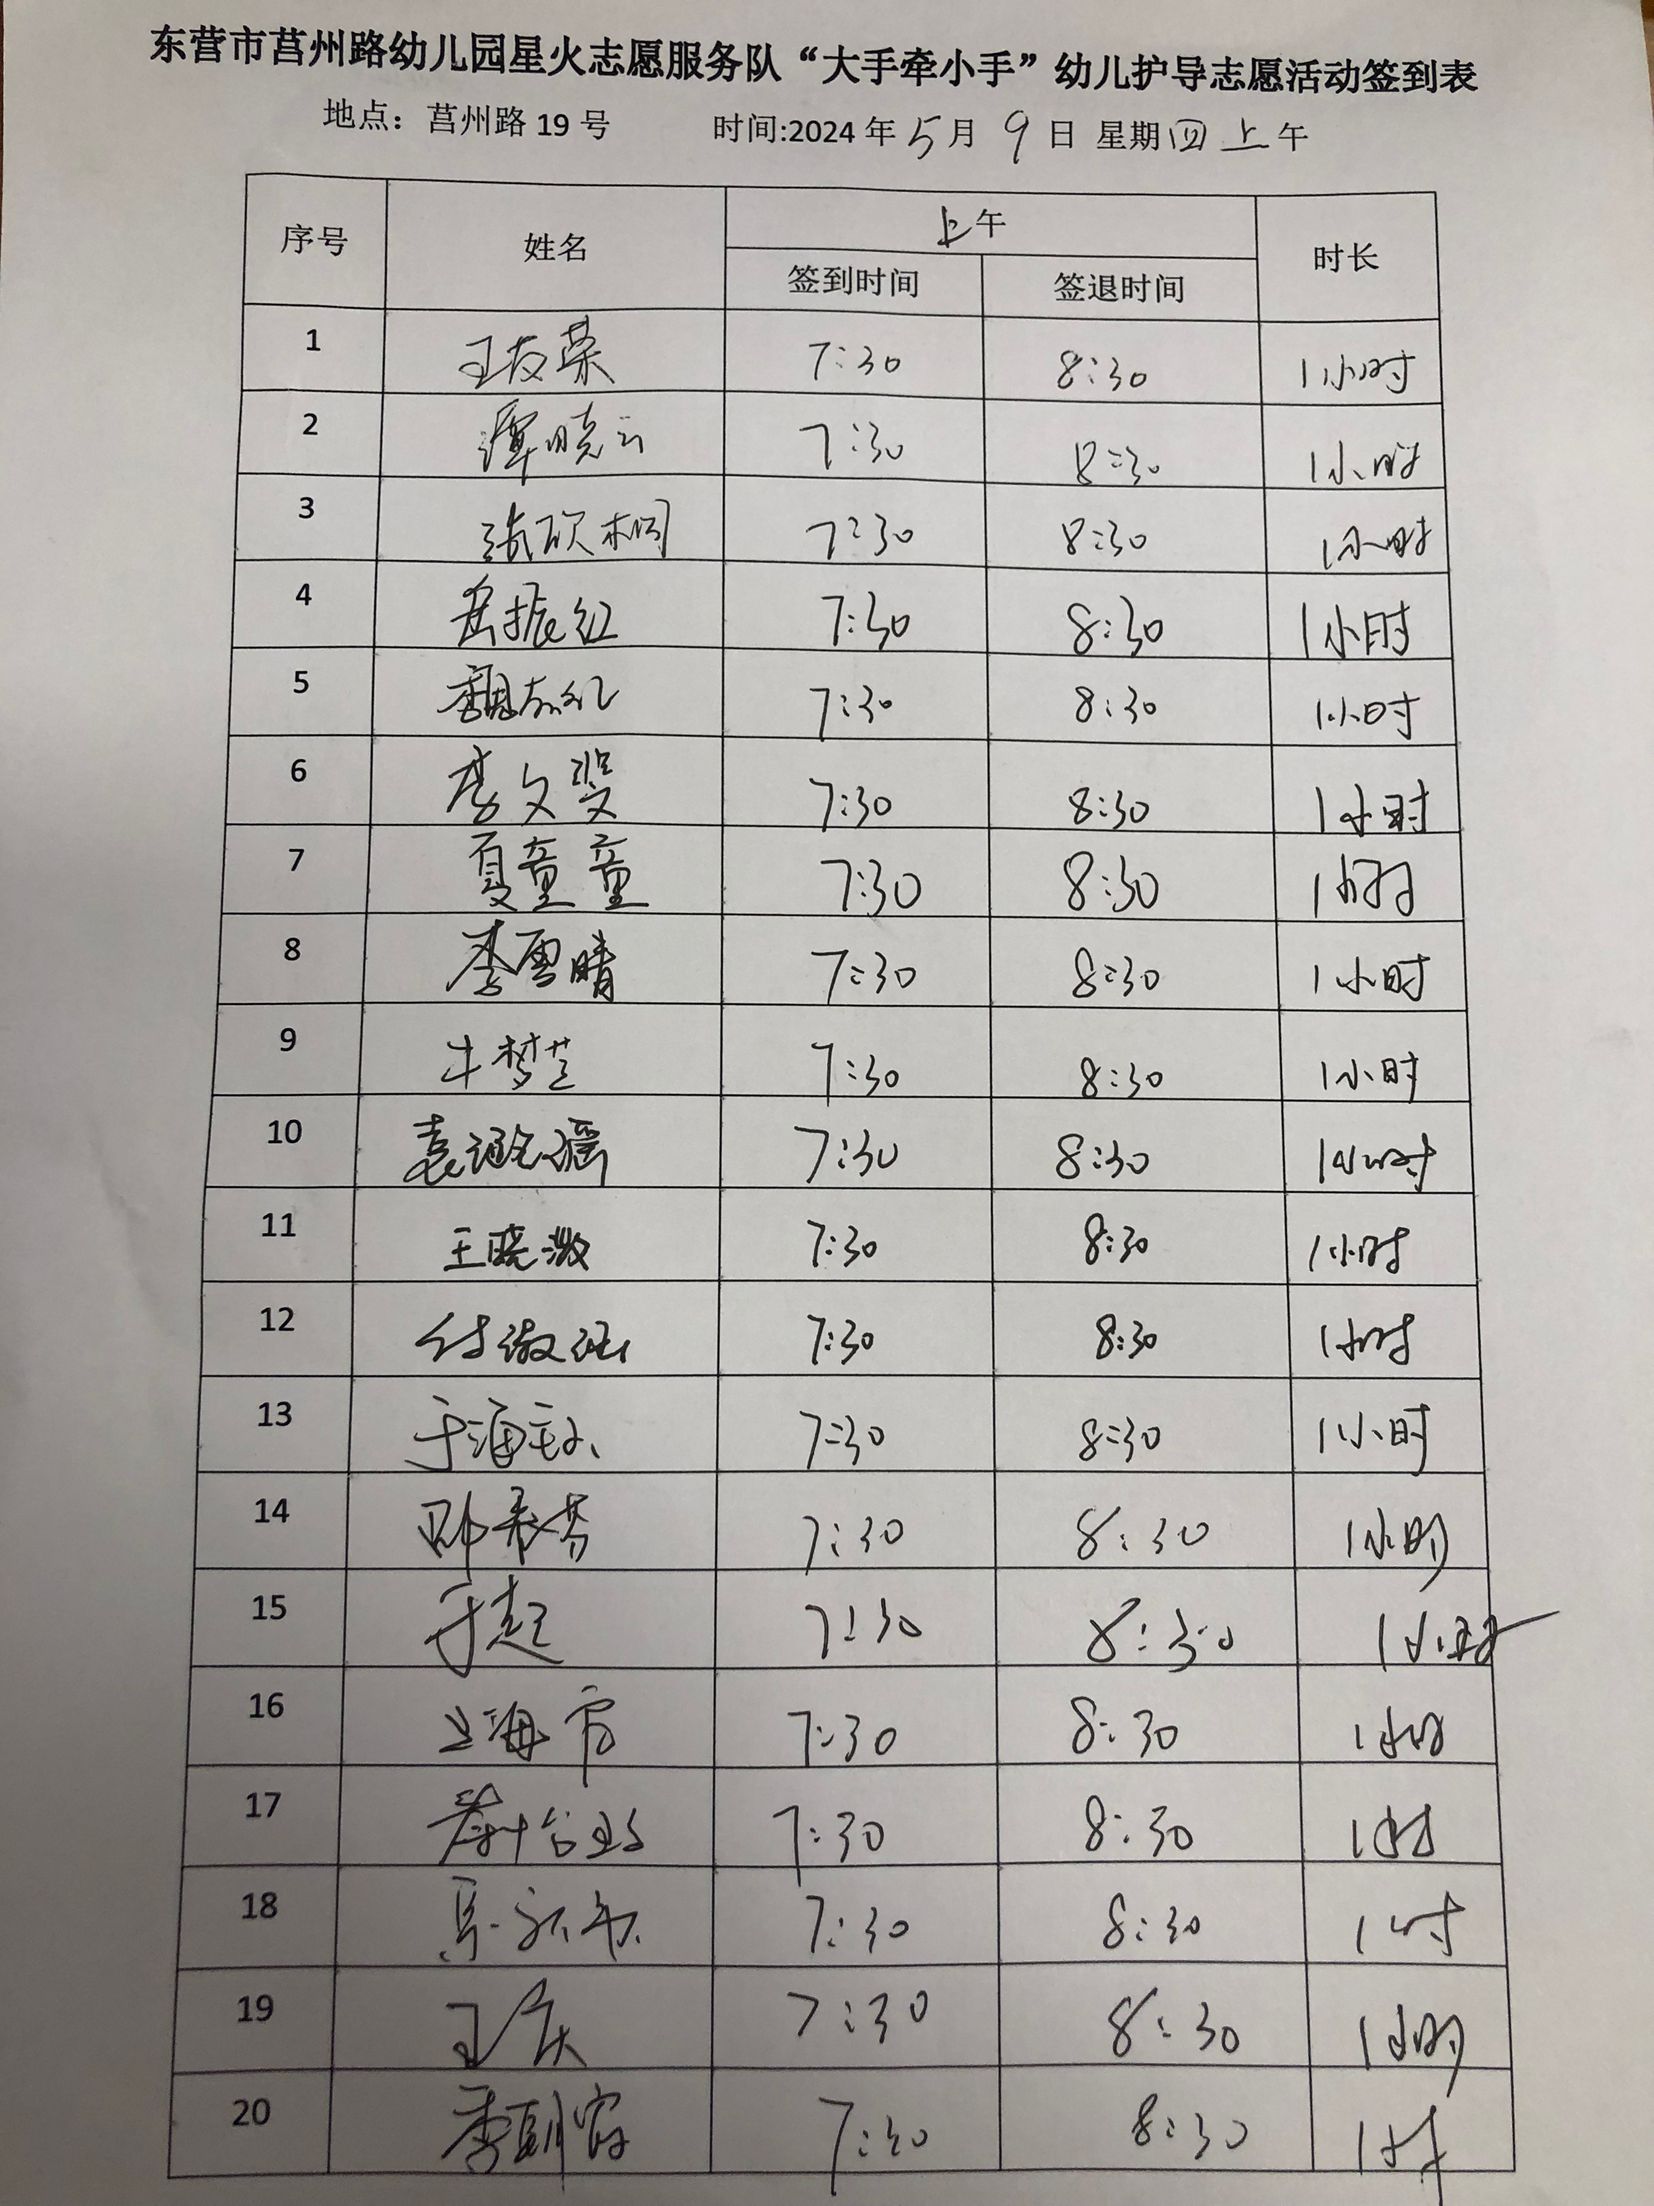 东营市莒州路幼儿园星火志愿服务队“大手牵小手”幼儿护导志愿活动签到表
地点：莒州路 19 号 时间:2024 年 5 月 9 日 星期四上午
序号 姓名 上午 时长
签到时间 签退时间
1 王友荣 7:30 8:30 1小时
2 谭晓云 7:30 8:30 1小时
3 张砍桐 7:30 8:30 1小时
4 岳振红 7:30 8:30 1小时
5 魏志礼 7:30 8:30 1小时
6 李文斐 7:30 8:30 1小时
7 夏童童 7:30 8:30 1小时
8 李雪晴 7:30 8:30 1小时
9 牛梦芝 7:30 8:30 1小时
10 袁 7:30 8:30 1小时
11 王晓激 7:30 8:30 1小时
12 付 7:30 8:30 1小时
13 于海 7:30 8:30 1小时
14 7:30 8:30 1小时
15 于超 7:30 8:30 1小时
16 7:30 8:30 1小时
17 7:30 8:30 1小时
18 7:30 8:30 1小时
19 王庆 7:30 8:30 1小时
20 7:30 8:30 1小时